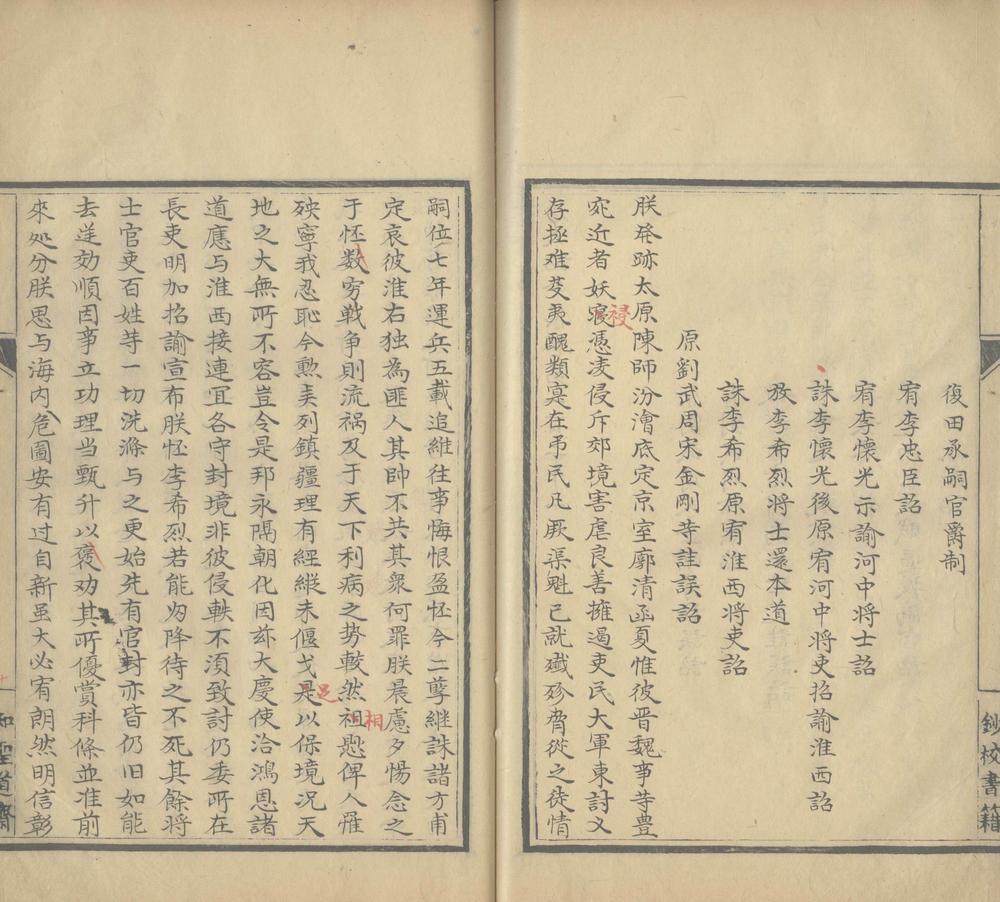 復田承嗣官爵制
宥李忠臣詔
宥李懷光示諭河中將士詔
誅李懷光後原宥河中將吏招諭淮西詔
放李希烈將士還本道
誅李希烈原宥淮西將吏詔
原劉武周宋金剛等詿誤詔
朕発跡太原陳師汾澮底定京室廓清函夏惟彼晋魏事等豊
宛近者妖寢祲憑凌侵斥郊境害虐良善擁遏吏民大軍東討义
存拯难芟夷醜類寔在弔民凡厥渠魁已就殱殄脅従之徒情
嗣位七年運兵五載追維往事悔恨盈怀今二孽継誅諸方甫
定哀彼淮右独為匪人其帥不共其衆何罪朕晨慮夕惕念之
于怀数穷戦争則流禍及于天下利病之势較然祖相懸俾人罹
殃寧我忍恥今勲賢列鎮疆理有經縦未偃戈是足以保境况天
地之大無所不容豈令是邦永隔朝化因茲大慶使洽鴻恩諸
道應与淮西接連宜各守封境非彼侵軼不須致討仍委所在
長吏明加招諭宣布朕怀李希烈若能为降待之不死其餘将
士官吏百姓等一切洗滌与之更始先有官封亦皆仍旧如能
去逆効順因事立功理当甄升以褒劝其所優賞科條並准前
來処分朕思与海内危圖安有过自新虽大必宥朗然明信彰
鈔校書籍
知聖道齋